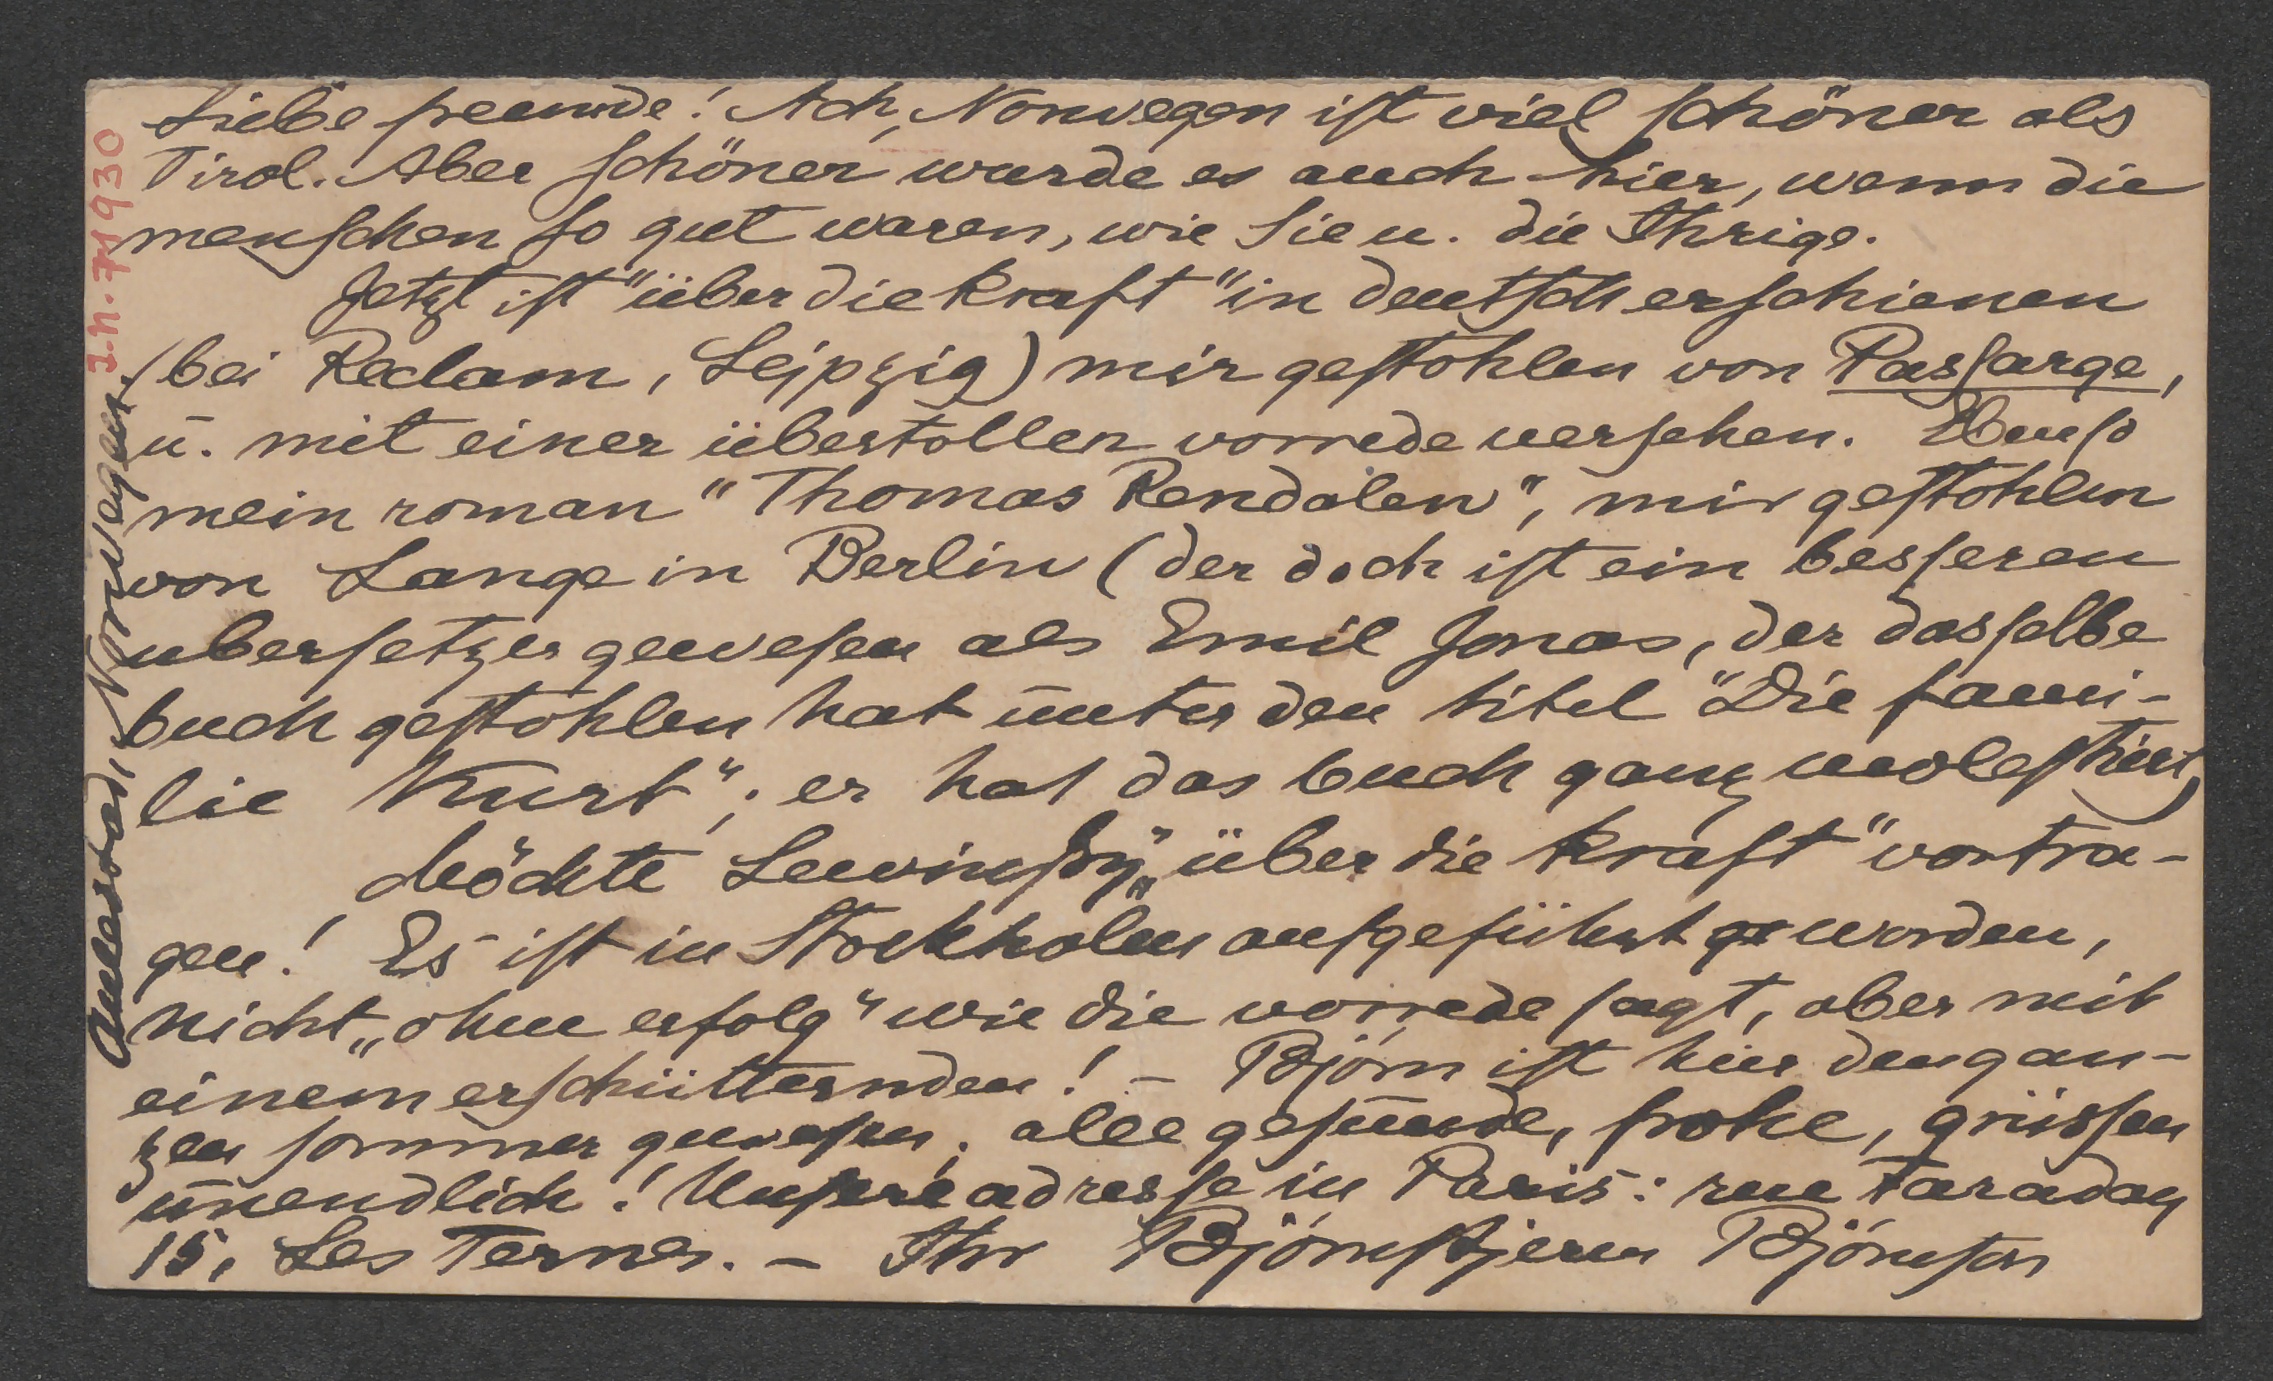 Liebe freunde! Ach, Norwegen ist viel schöner als
Tirol. Aber schöner wurde es auch hier, wenn die
menschen so gut waren, wie Sie u. die Ihrige.
Jetzt ist "über die kraft" in deutsch erschienen
(bei Reclam, Lejpzig) mir gestohlen von Passarge,
ū. mit einer übertollen vorrede versehen. Ebenso
mein roman "Thomas Rendalen", mir gestohlen
von Lange in Berlin (der doch ist ein besseren
ubersetzer gewesen als Emil Jonas, der dasselbe
buch gestohlen hat ūnter den titel "Die fami-
lie Kurt"; er hat das buch ganz molestirt)
Möchte Lewinsky "über die kraft" vortra-
gen! Es ist in Stockholm aufgeführt geworden,
nicht „ohne erfolg" wie die vorrede sagt, aber mit
einem erschütternden! – Björn ist hier den gan-
zen sommer gewesen; alle gesūnde, frohe, grüssen
ūnendlich! Unsere adresse in Paris: rue Faraday
15, Les Ternes. – Ihr Björnstjerne Björnson
Aulestad, Norwegen.
I.N. 74930